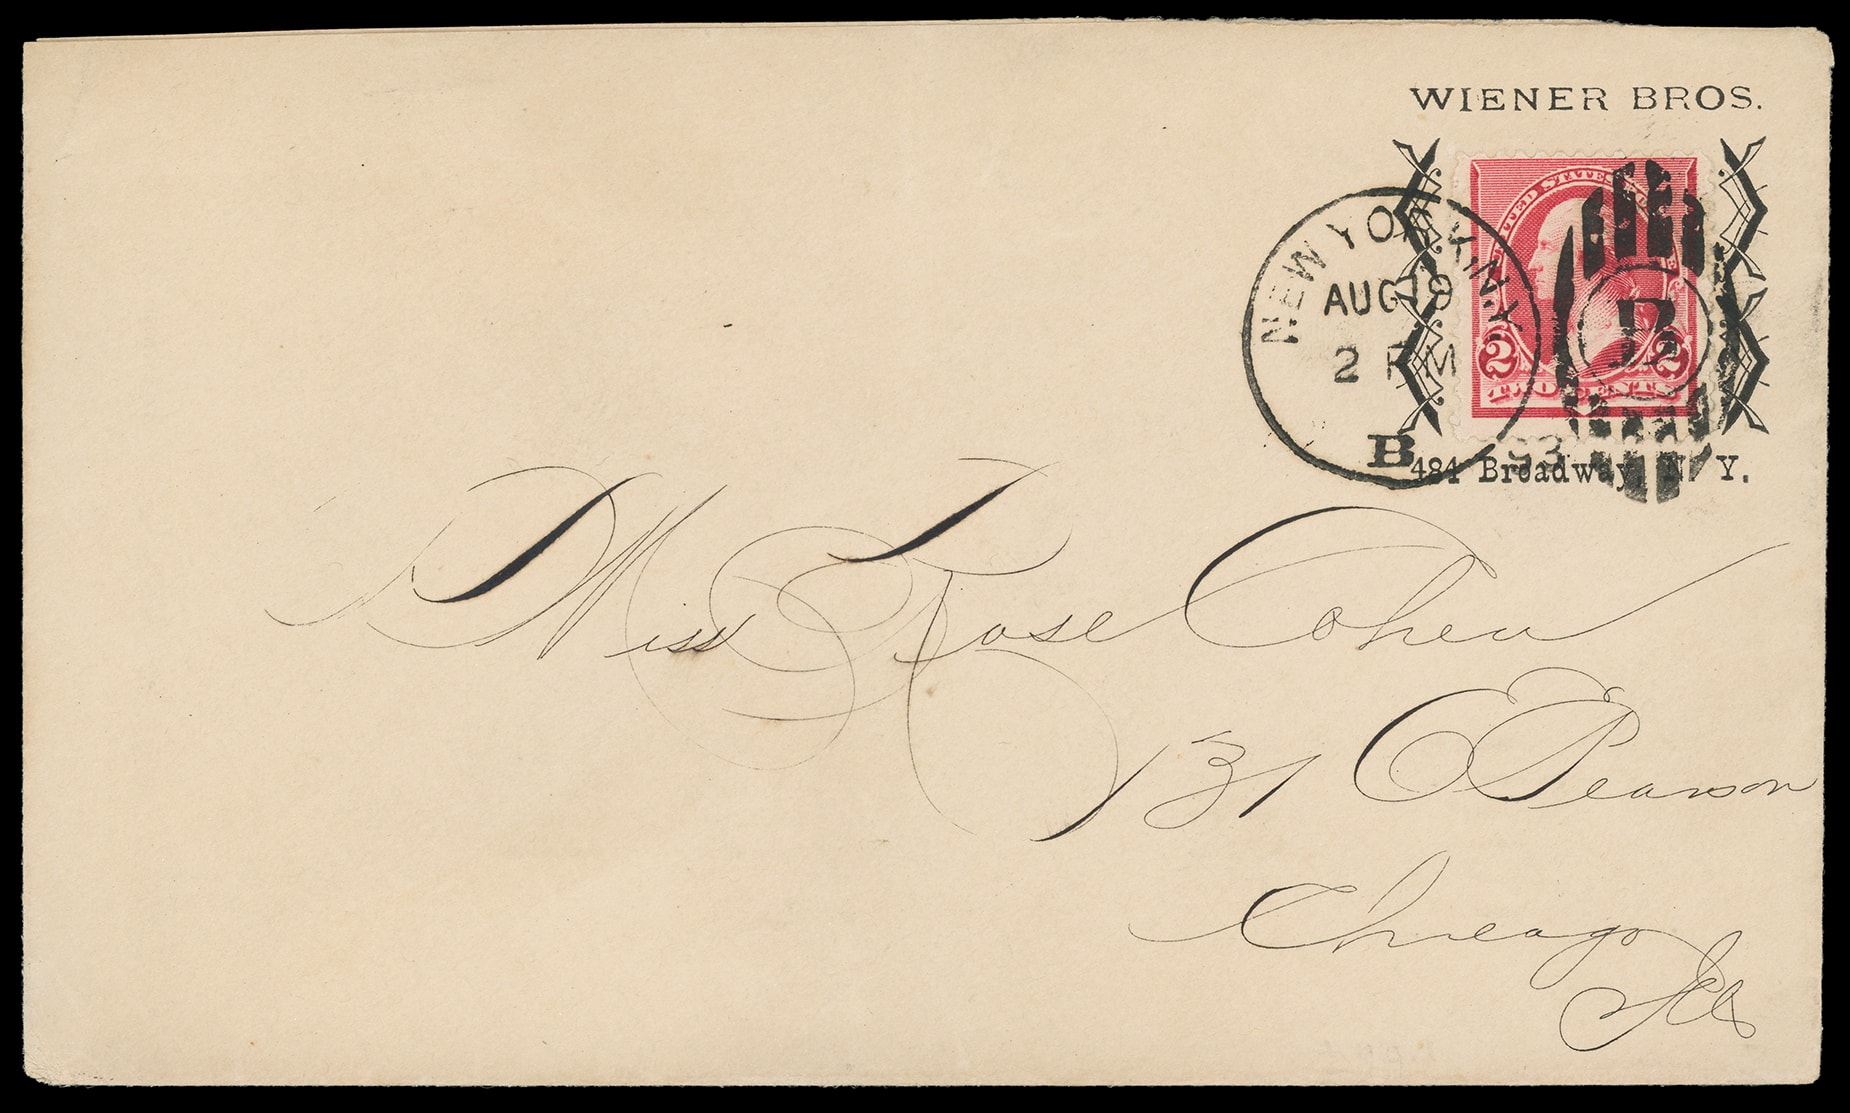 WIENER BROS.
UNITED STATES
2 2
TWO CENTS
NEW YORK, N.Y.
AUG 19
2 PM
93
B
484 Broadway, N. Y.
Miss Rose Cohen
131 E Pearson
Chicago
Ills